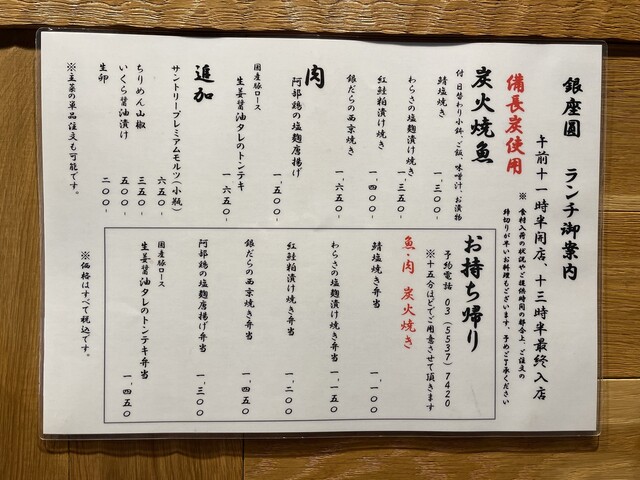 銀座圓　ランチ御案内
午前十一時半開店、十三時半最終入店
※ 食材入荷の状況やご提供時間の都合上、ご注文の
締切りが早いお料理もございます。予めご了承ください
備長炭使用
炭火焼魚
付 日替わり小鉢、ご飯、味噌汁、お漬物
鯖塩焼き　一、三〇〇-
わらさの塩麹漬け焼き　一、三五〇-
紅鮭粕漬け焼き　一、四〇〇-
銀だらの西京焼き　一、六五〇-
肉
阿部鶏の塩麹唐揚げ　一、五〇〇-
国産豚ロース
生姜醤油タレのトンテキ　一、六五〇-
追加
サントリープレミアムモルツ(小瓶)　六五〇-
ちりめん山椒　三五〇-
いくら醤油漬け　五〇〇-
生卵　二〇〇-
※主菜の単品注文も可能です。
お持ち帰り
予約電話 03 (5537) 7420
※十五分ほどでご用意させて頂きます
魚・肉 炭火焼き
鯖塩焼き弁当　一、一〇〇
わらさの塩麹漬け焼き弁当　一、一五〇
紅鮭粕漬け焼き弁当　一、二〇〇
銀だらの西京焼き弁当　一、四五〇
阿部鶏の塩麹唐揚げ弁当　一、三〇〇
国産豚ロース
生姜醤油タレのトンテキ弁当　一、四五〇
※価格はすべて税込です。